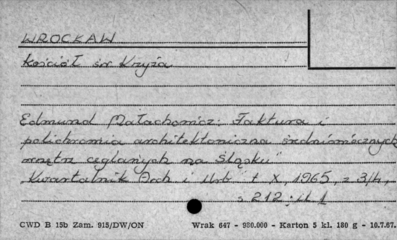 WROCŁAW
Kościół św Krzyża
Edmund Małachowicz: Faktura i
polichromia architektoniczna średniowiecznych
wnętrz ceglanych na Śląsku"
Kwartalnik Arch i Urb t X, 1965, z 3/4,
s 212; il. 1
CWD B 15b Zam. 915/DW/ON Wrak 647 - 980.000 - Karton 5 kl. 180 g - 10.7.67.